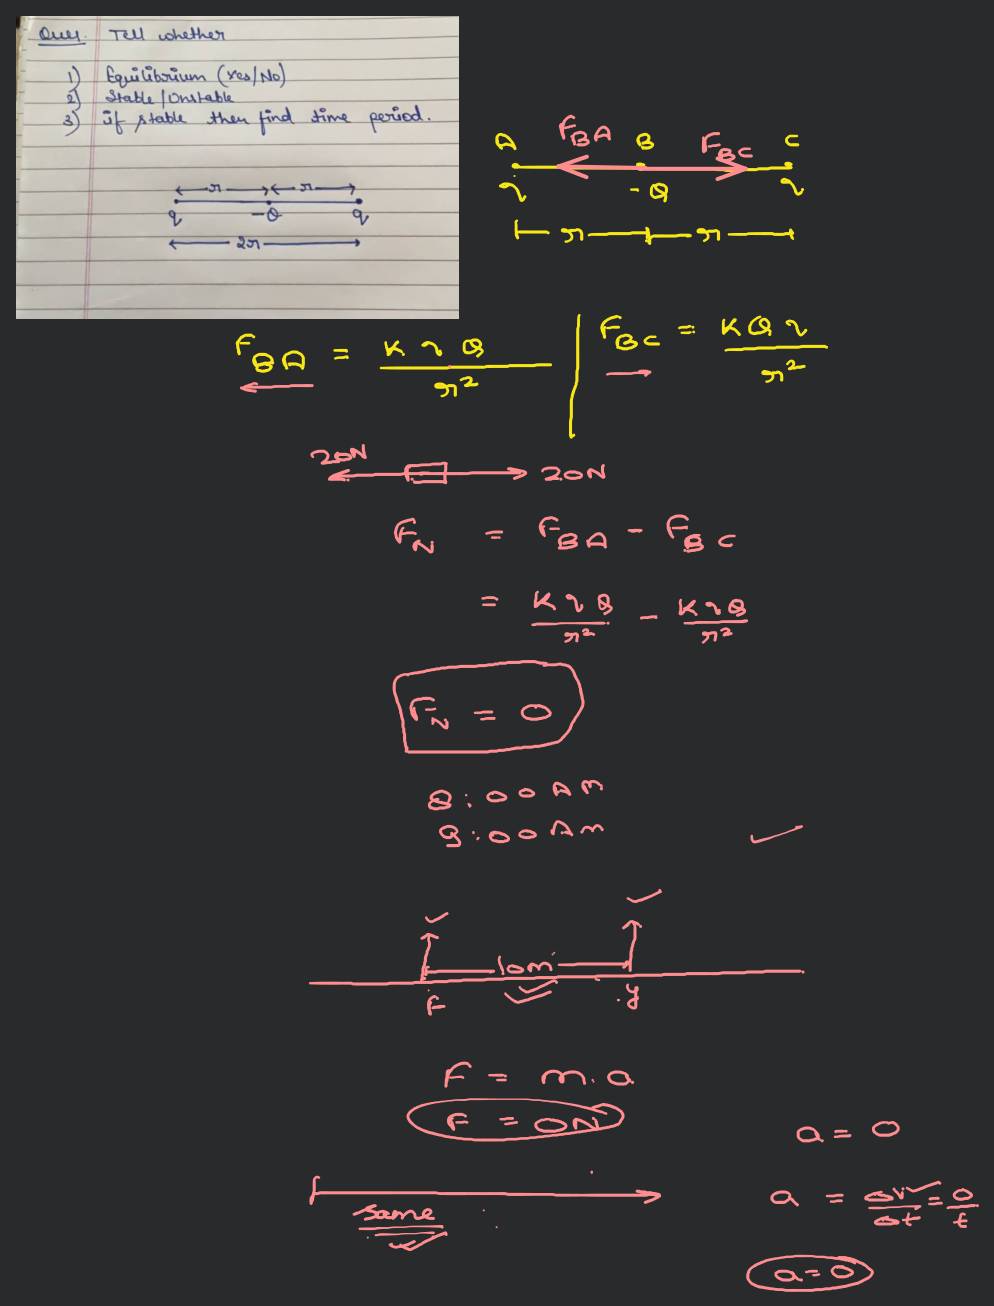 Ques. Tell whether
1) Equilibrium (Yes/No)
2) Stable/Unstable
3) if stable then find time period.
r r
q -Q q
2r
A F_BA B F_BC C
q -Q q
r r
F_BA = K q Q / r²
F_BC = K Q q / r²
20N 20N
F_N = F_BA - F_BC
= K q Q / r² - K q Q / r²
F_N = 0
8:00 AM
9:00 Am
10m
F y
F = m.a
F = 0N
a = 0
same
a = ΔV / Δt = 0 / t
a = 0